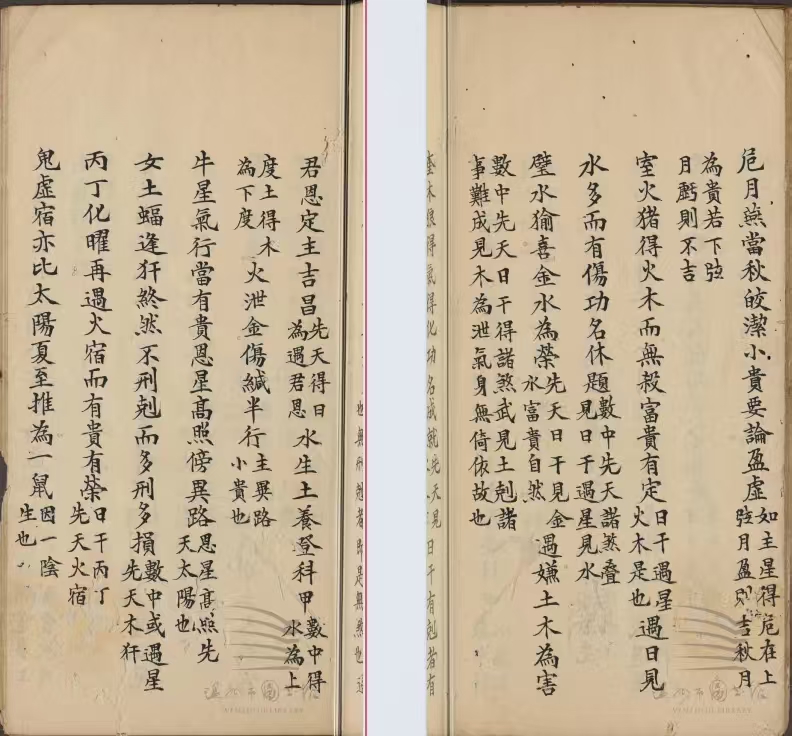 危月燕當秋皎潔小貴要論盈虛如主星得危在上弦月盈則吉秋月
為貴若下弦月虧則不吉
室火猪得火木而無殺富貴有定日干遇星火木是也過日見
水多而有傷功名休題數中先天諸煞疊見日干過星見水
壁水貐喜金水為榮先天日干見金水富貴自然遇嫌土木為害
數中先天日干得諸煞武見土剋諸事難成見木為泄氣身無倚依故也
得氣得化功名成就先天見日干有剋者有
也無刑剋者即是無煞也
君恩定主吉昌先天得日為遇君恩水生土養登科甲數中得水為上
度土得木為下度火泄金傷緘半行主異路小貴也
牛星氣行當有貴恩星高照傍異路恩星高照先天太陽也
女土蝠逢犴煞然不刑剋而多刑多損數中或遇星先天木犴
丙丁化曜再遇火宿而有貴有榮日干丙丁先天火宿
鬼虛宿亦比太陽夏至推為一鼠因一陰生也